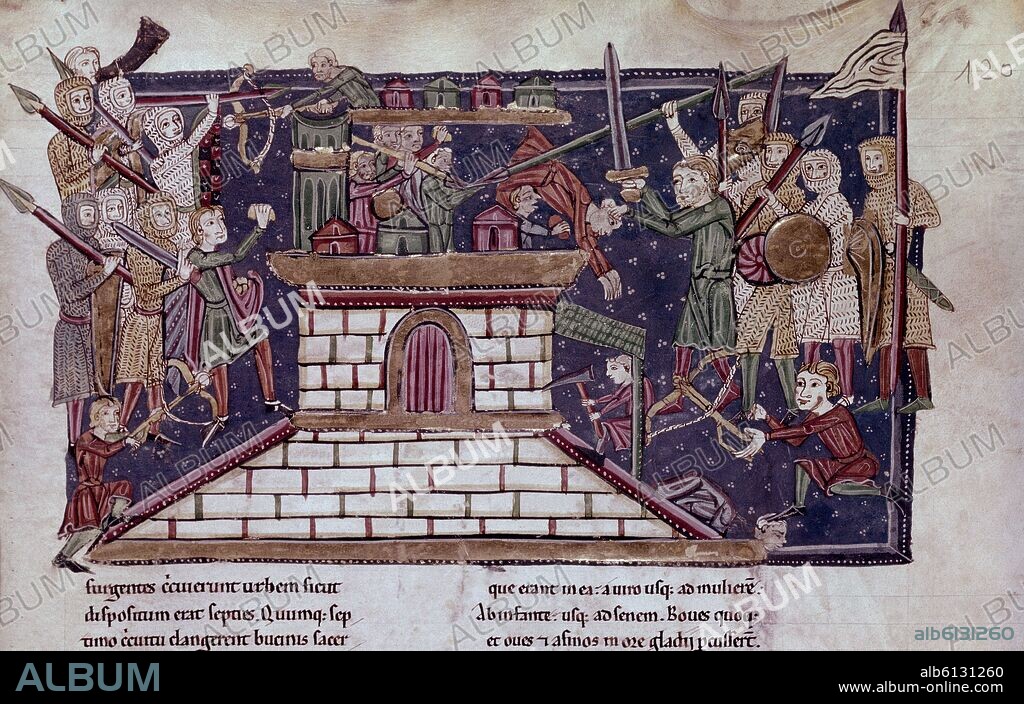 surgentes c̃cuierunt urbem sicut
dispositum erat septies. Quumq; sep
timo c̃cuitu clangerent bucinis sacer
que erant in ea: a uiro usq; ad mulierē.
Ab infante: usq; ad senem. Boues quoq;
et oues ⁊ asinos in ore gladij ꝑcusser̃t.
alb6131260
ALBUM
alb6131260
www.album-online.com